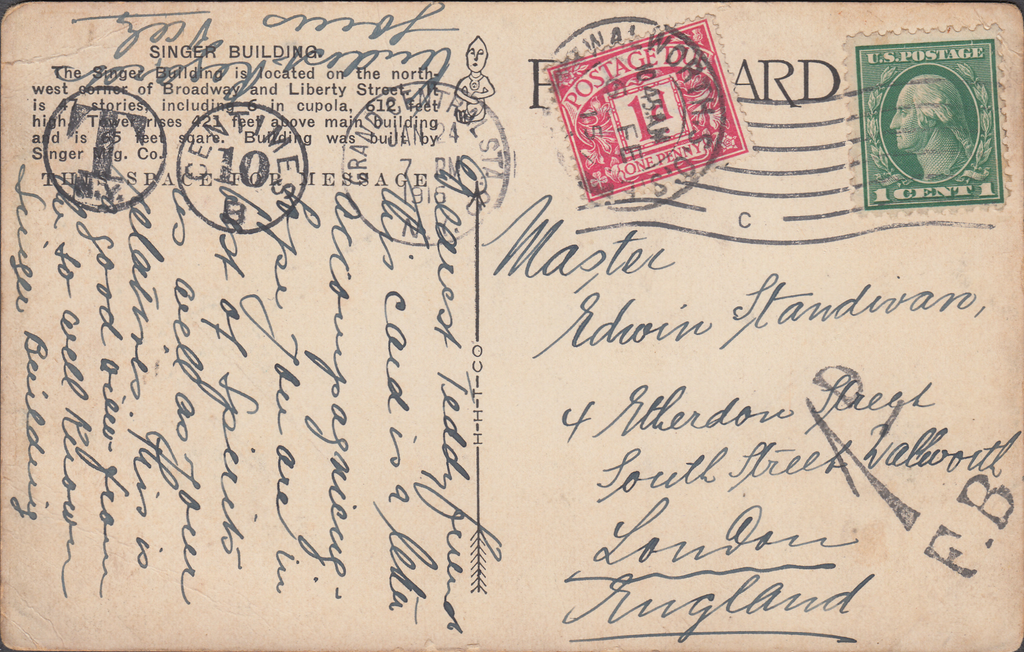 SINGER BUILDING.
The Singer Building is located on the north-
west corner of Broadway and Liberty Street. It
is 47 stories, including 6 in cupola, 612 feet
high. Tower rises 421 feet above main building
and is 65 feet square. Building was built by
Singer Mfg. Co.
THIS SPACE FOR MESSAGE
POST CARD
T
N.Y.
CENTIMES
10
D
GRAND CENTRAL STA.
JAN 24
7 PM
1916
N.Y.
WALWORTH
FE
POSTAGE DUE
1D
ONE PENNY
U.S. POSTAGE
1 CENT 1
C
H-H-T-CO
Dearest Teddy friend
This card is a letter
accompagnieing-
Hope you are in
best of spirits
as well as your
relatives. This is
a good view from
the so well known
Singer Building
Yours
Master
Edwin Standivan,
4 Etherdon Street
South Street Walworth
London
England
1D
F.B